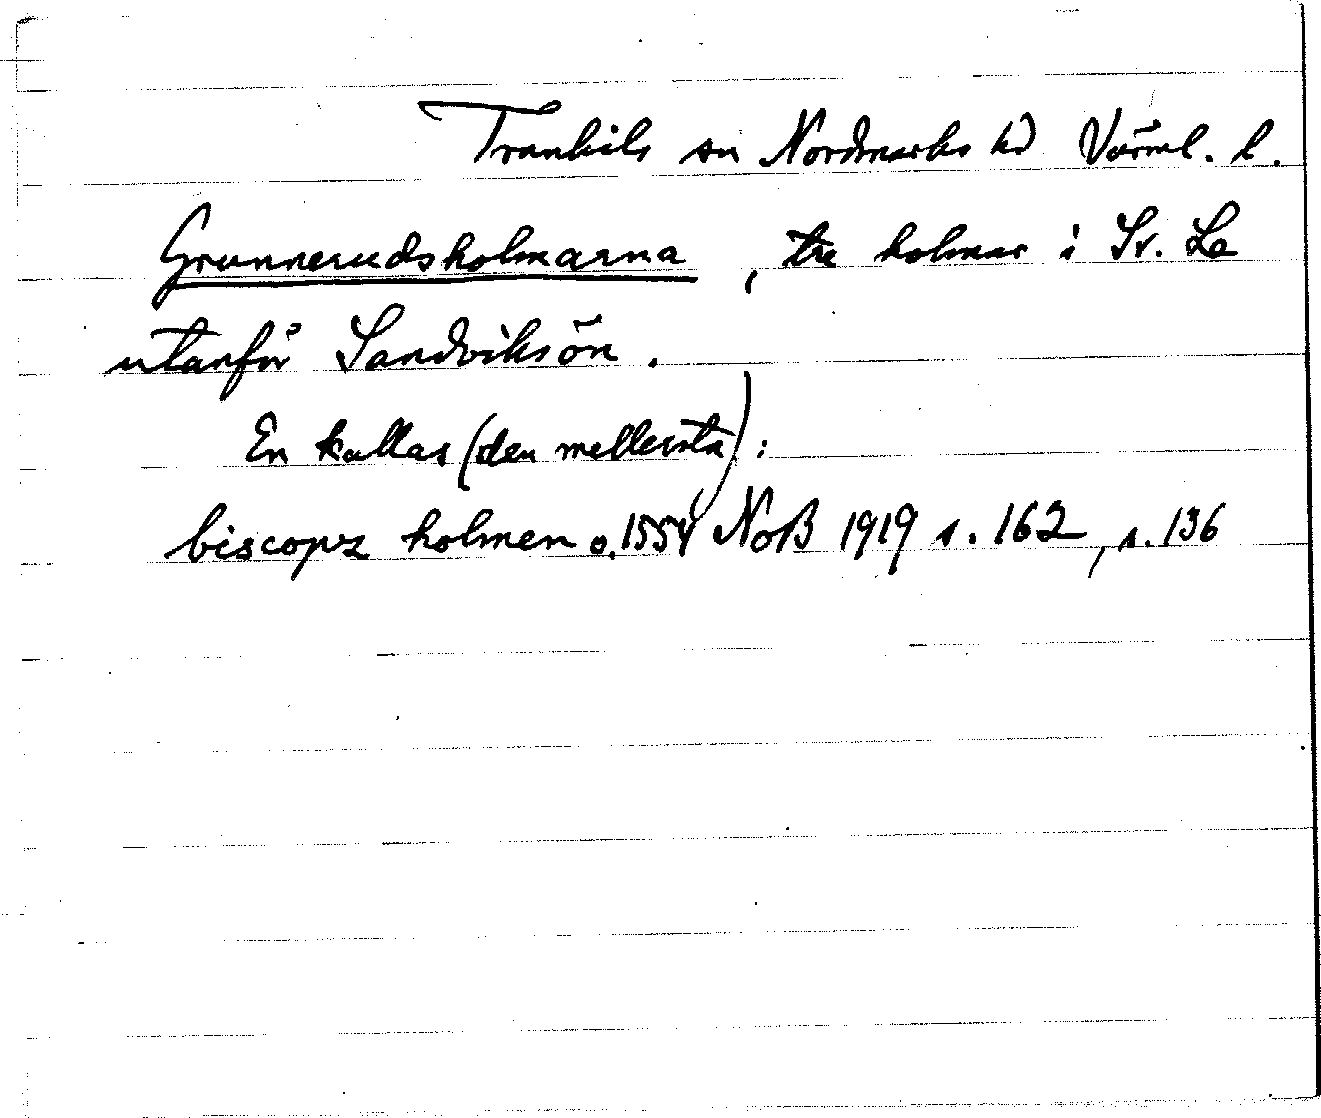 Trankils sn Nordmarks hd Värml. l.
Grunnerudsholmarna, tre holmar i St. Le
utanför Sandviksön.
En kallas (den mellersta):
biscopz holmen o. 1554 NoB 1919 s. 162, s. 136